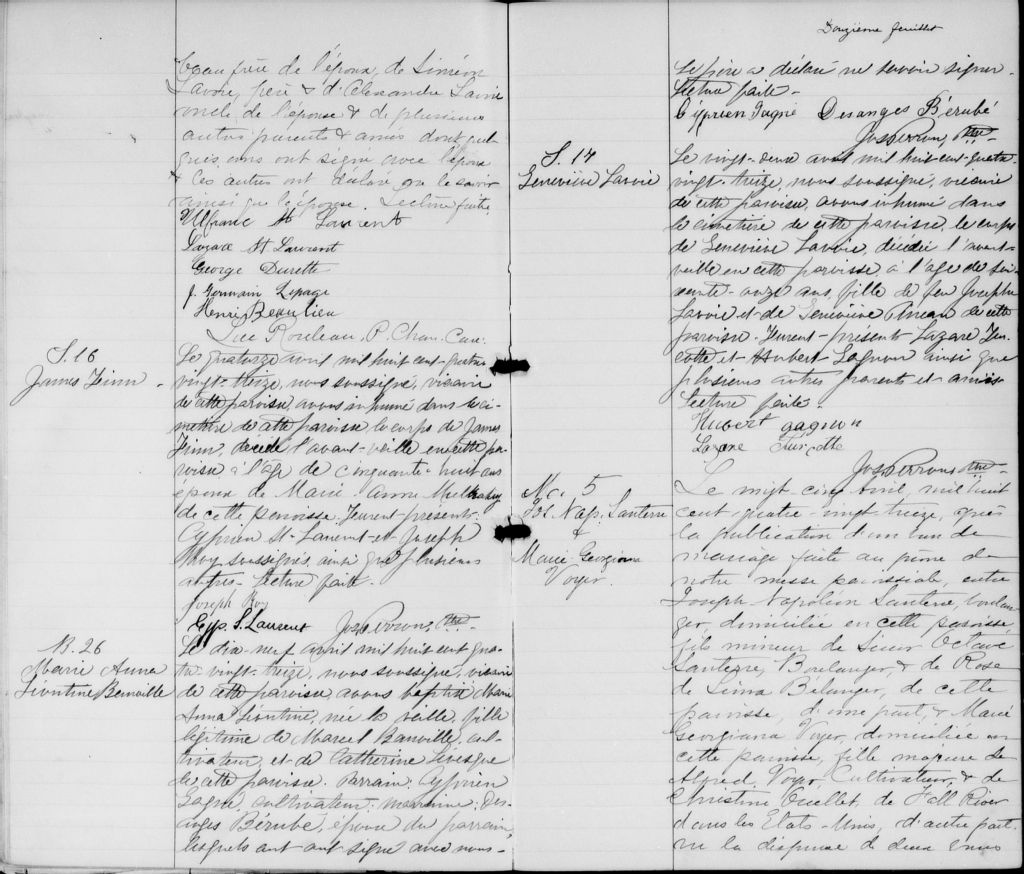 Beau frère de l'époux, de Siméon
Lavoie, père & d'Alexandre Lavoie
oncle de l'épouse & de plusieurs
autres parents & amis dont quel-
ques uns ont signé avec l'époux
& les autres ont déclaré ne le savoir
ainsi que l'épouse. Lecture faite.
Ulfranc St Laurent
Lazare St Laurent
George Durette
J. Germain Lepage
Henri Beaulieu
Luc Rouleau, P. Chan. Cure.
S. 16
James Finn -
Le quatorze avril mil huit cent quatre
vingt-treize, nous soussigné, vicaire
de cette paroisse, avons inhumé dans le ci-
metière de cette paroisse le corps de James
Finn, décédé l'avant-veille en cette pa-
roisse à l'âge de cinquante-huit ans
époux de Marie-Anne
de cette paroisse. Furent-présents
Cyprien St-Laurent et Joseph
Roy soussignés, ainsi que plusieurs
autres. Lecture faite.
Joseph Roy
Cyp. S. Laurent Jos Perron, Ptre.
B. 26
Marie Anna
Léontine Banville
Le dix-neuf avril mil huit cent qua-
tre vingt-treize, nous soussigné, vicaire
de cette paroisse avons baptisé Marie
Anna Léontine, née la veille, fille
légitime de Marcel Banville, cul-
tivateur, et de Catherine Lévesque
de cette paroisse. Parrain, Cyprien
Gagné, cultivateur, marraine, Des-
anges Bérubé, épouse du parrain,
lesquels ont signé avec nous -
Douzième feuillet
Le père a déclaré ne savoir signer.
Lecture faite -
Cyprien Gagné Desanges Bérubé
Jos Perron, Ptre.
S. 17
Geneviève Lavoie
Le vingt-deux avril mil huit cent quatre
vingt-treize, nous soussigné, vicaire
de cette paroisse, avons inhumé dans
le cimetière de cette paroisse, le corps
de Geneviève Lavoie, décédée l'avant-
veille en cette paroisse, à l'âge de soi-
xante-onze ans, fille de feu Joseph
Lavoie et de Geneviève de cette
paroisse. Furent-présents Lazare Tur-
cotte et Hubert Gagnon ainsi que
plusieurs autres parents et amis.
Lecture faite.
Hubert gagnon
Lazare Turcotte
Jos Perron, Ptre.
M. 5
Jos Nap. Santerre
&
Marie Georgiana
Voyer.
Le vingt-cinq avril, mil huit
cent quatre-vingt treize, après
la publication d'un ban de
mariage faite au prône de
notre messe paroissiale, entre
Joseph-Napoléon Santerre, boulan-
ger, domicilié en cette paroisse
fils mineur de Sieur Octave
Santerre, Boulanger, & de Rose
de Lima Bélanger, de cette
paroisse, d'une part, & Marie
Georgiana Voyer, domiciliée en
cette paroisse, fille majeure de
Alfred Voyer Cultivateur, & de
Christine Ouellet, de Fall River
dans les Etats-Unis, d'autre part.
vu la dispense de deux bans